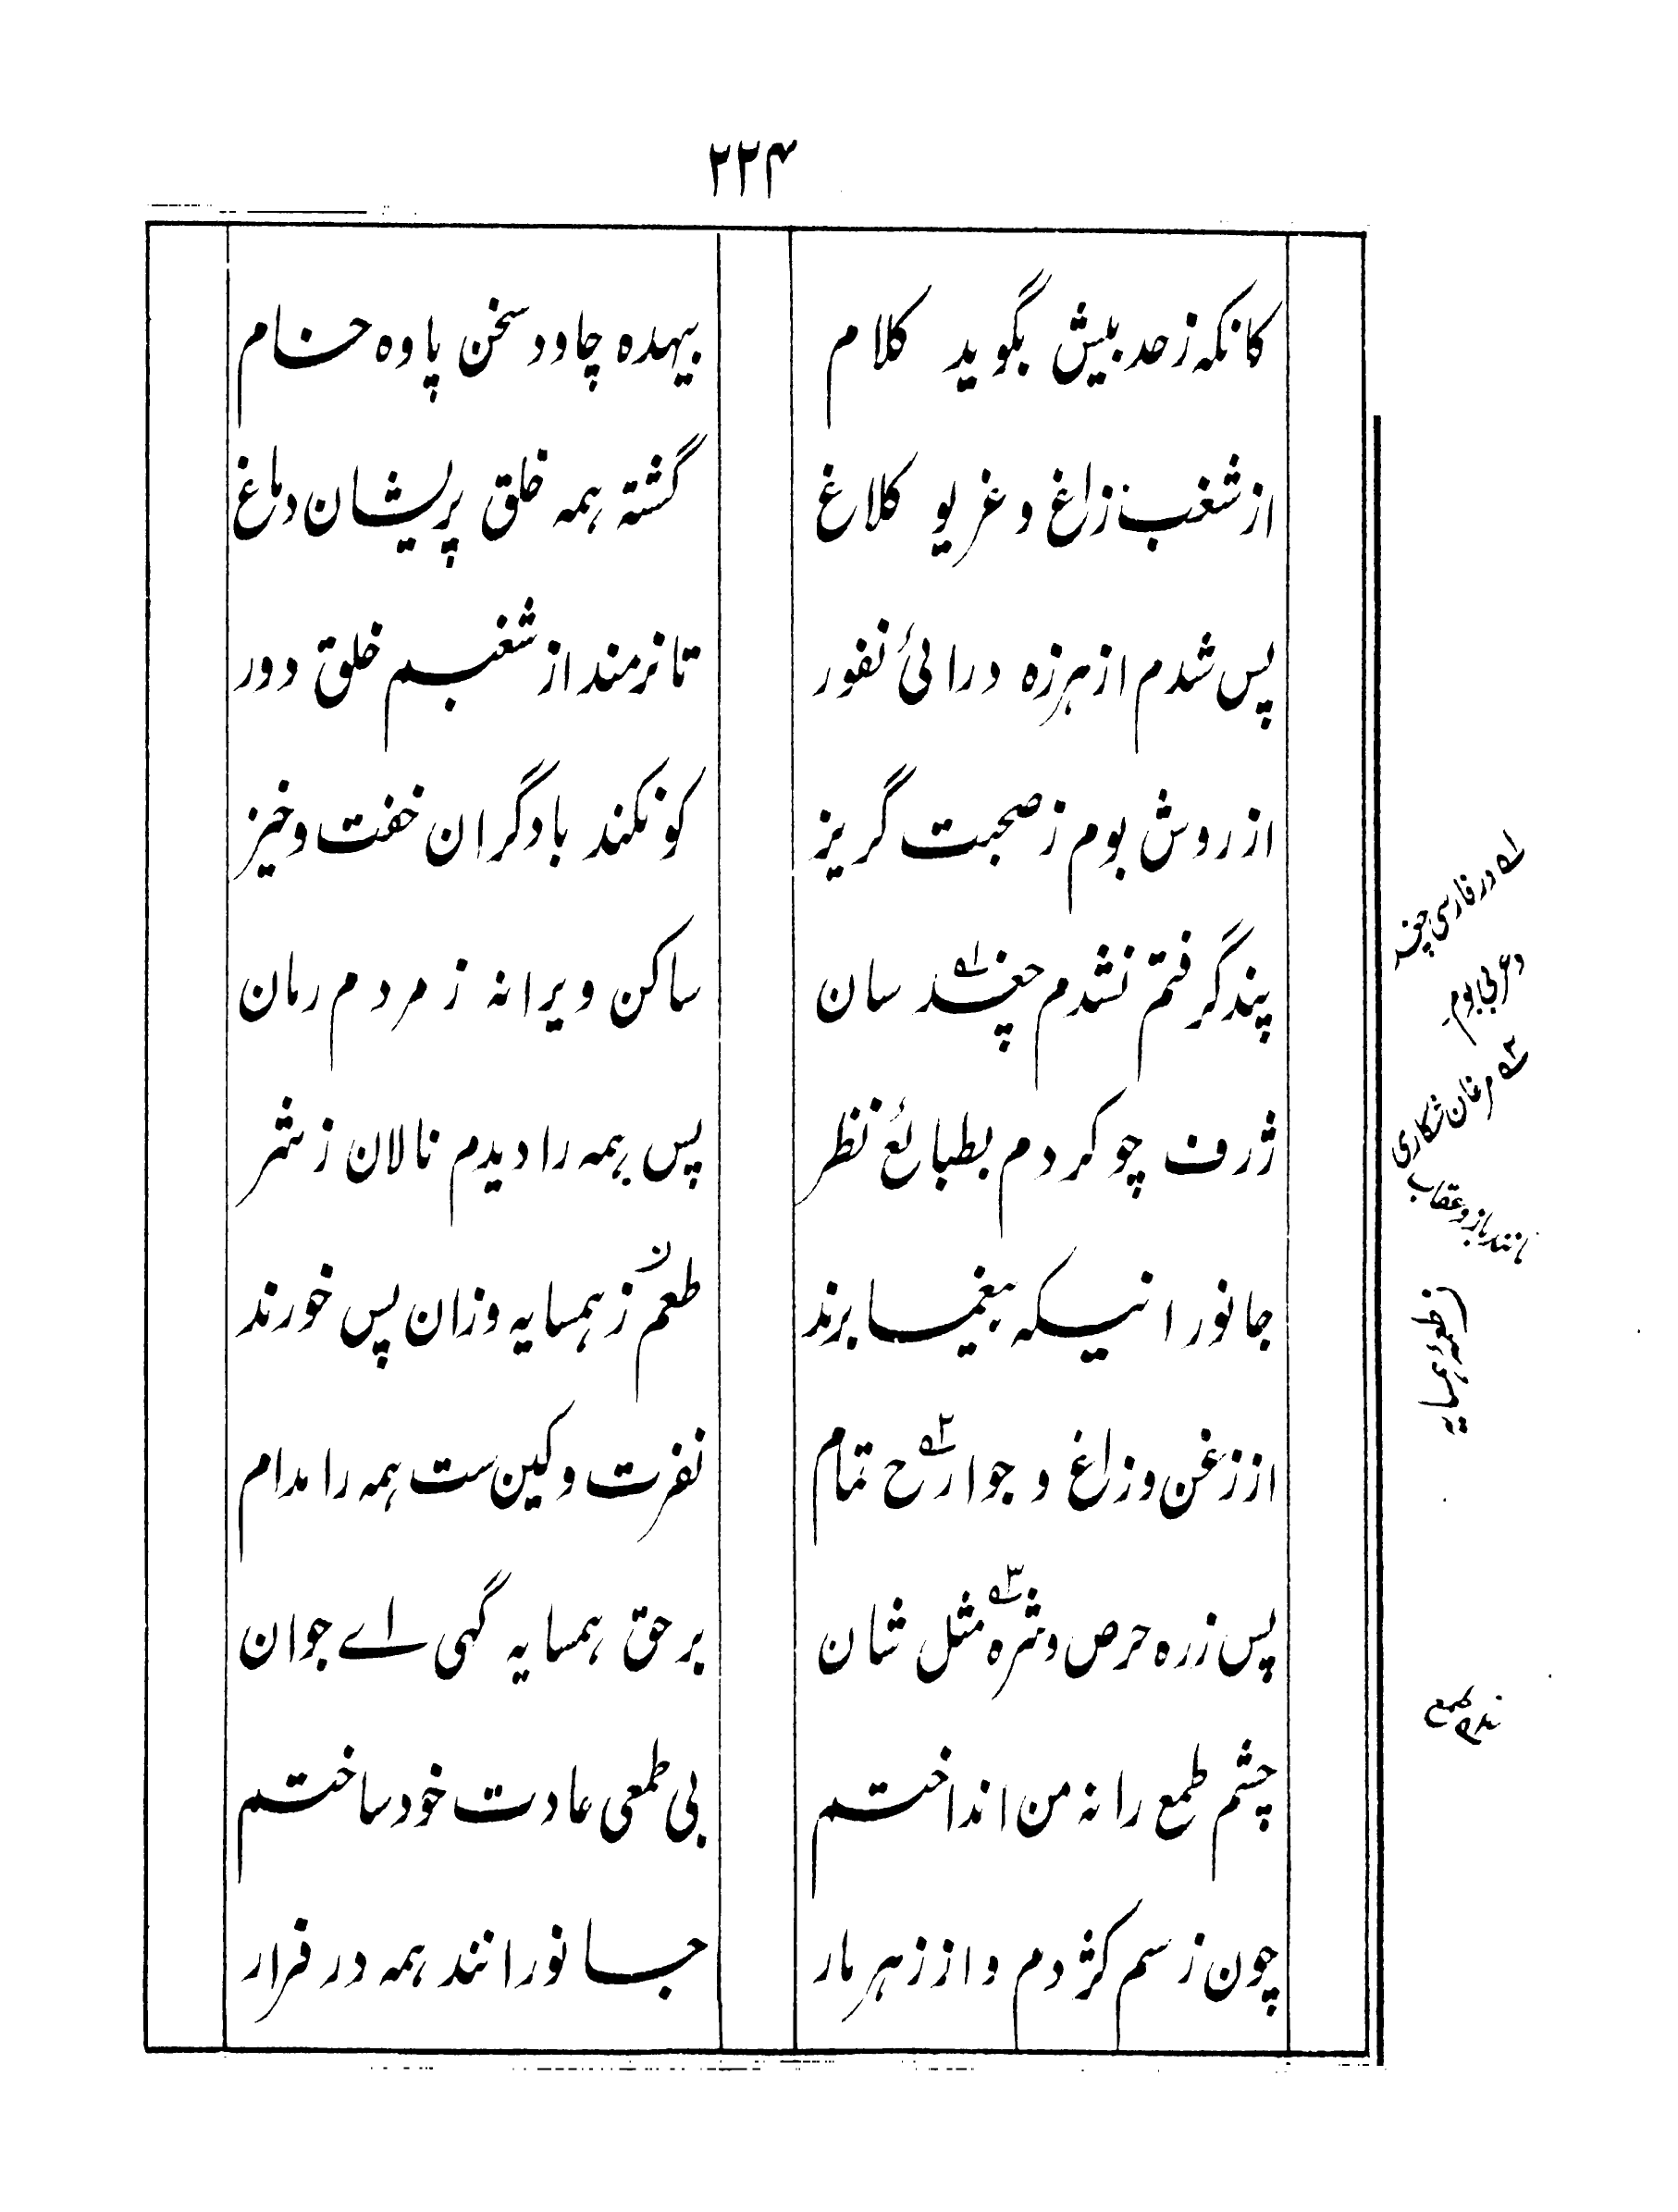 ۲۲۴
کانکہ زحد بیش بگوید کلام
بیہدہ چاود سخن یاوہ خام
از شغب زاغ و غریو کلاغ
گشتہ ہمہ خلق پریشان دماغ
پس شدم از ہرزہ درائی نفور
تا نرمند از شغبم خلق دور
از روش بوم ز صحبت گریز
کو نکند با دگران خفت و خیز
پند گرفتم نشدم چغد سان
ساکن ویرانہ ز مردم رمان
ژرف چو کردم بطبائع نظر
پس ہمہ را دیدم نالان ز شر
جانور انیکہ بیغما برند
طعم ز ہمسایہ وزان پس خورند
از زغن و زاغ و جوارح تمام
نفرت و کین ست ہمہ را مدام
پس زرہ حرص و شرہ مثل شان
بر حق ہمسایہ گہی اے جوان
چشم طمع را نہ من انداختم
بی طمعی عادت خود ساختم
چون ز سم کژدم و از زہر مار
جانورانند ہمہ در فرار
۱ در فارسی چغد
و عربی بوم
۲ مرغان شکاری
مانند باز و عقاب
ن طعمۂ ہمسایہ
طمع